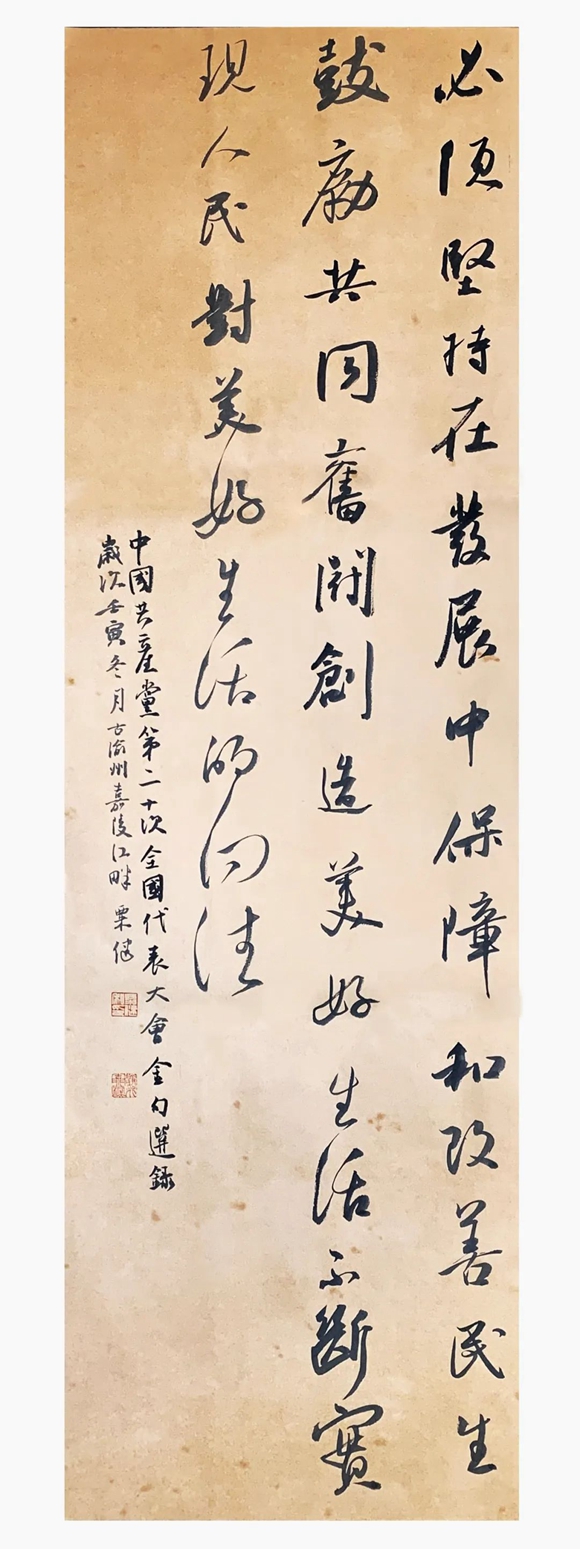 必須堅持在發展中保障和改善民生
鼓勵共同奮鬥創造美好生活不斷實
現人民對美好生活的向往
中國共產黨第二十次全國代表大會金句選錄
歲次壬寅冬月古渝州嘉陵江畔栗健